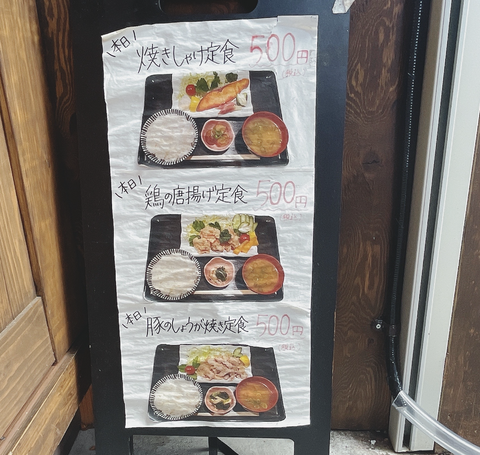 本日!
焼きしゃけ定食 500円
(税込)
本日!
鶏の唐揚げ定食 500円
(税込)
本日!
豚のしょうが焼き定食 500円
(税込)